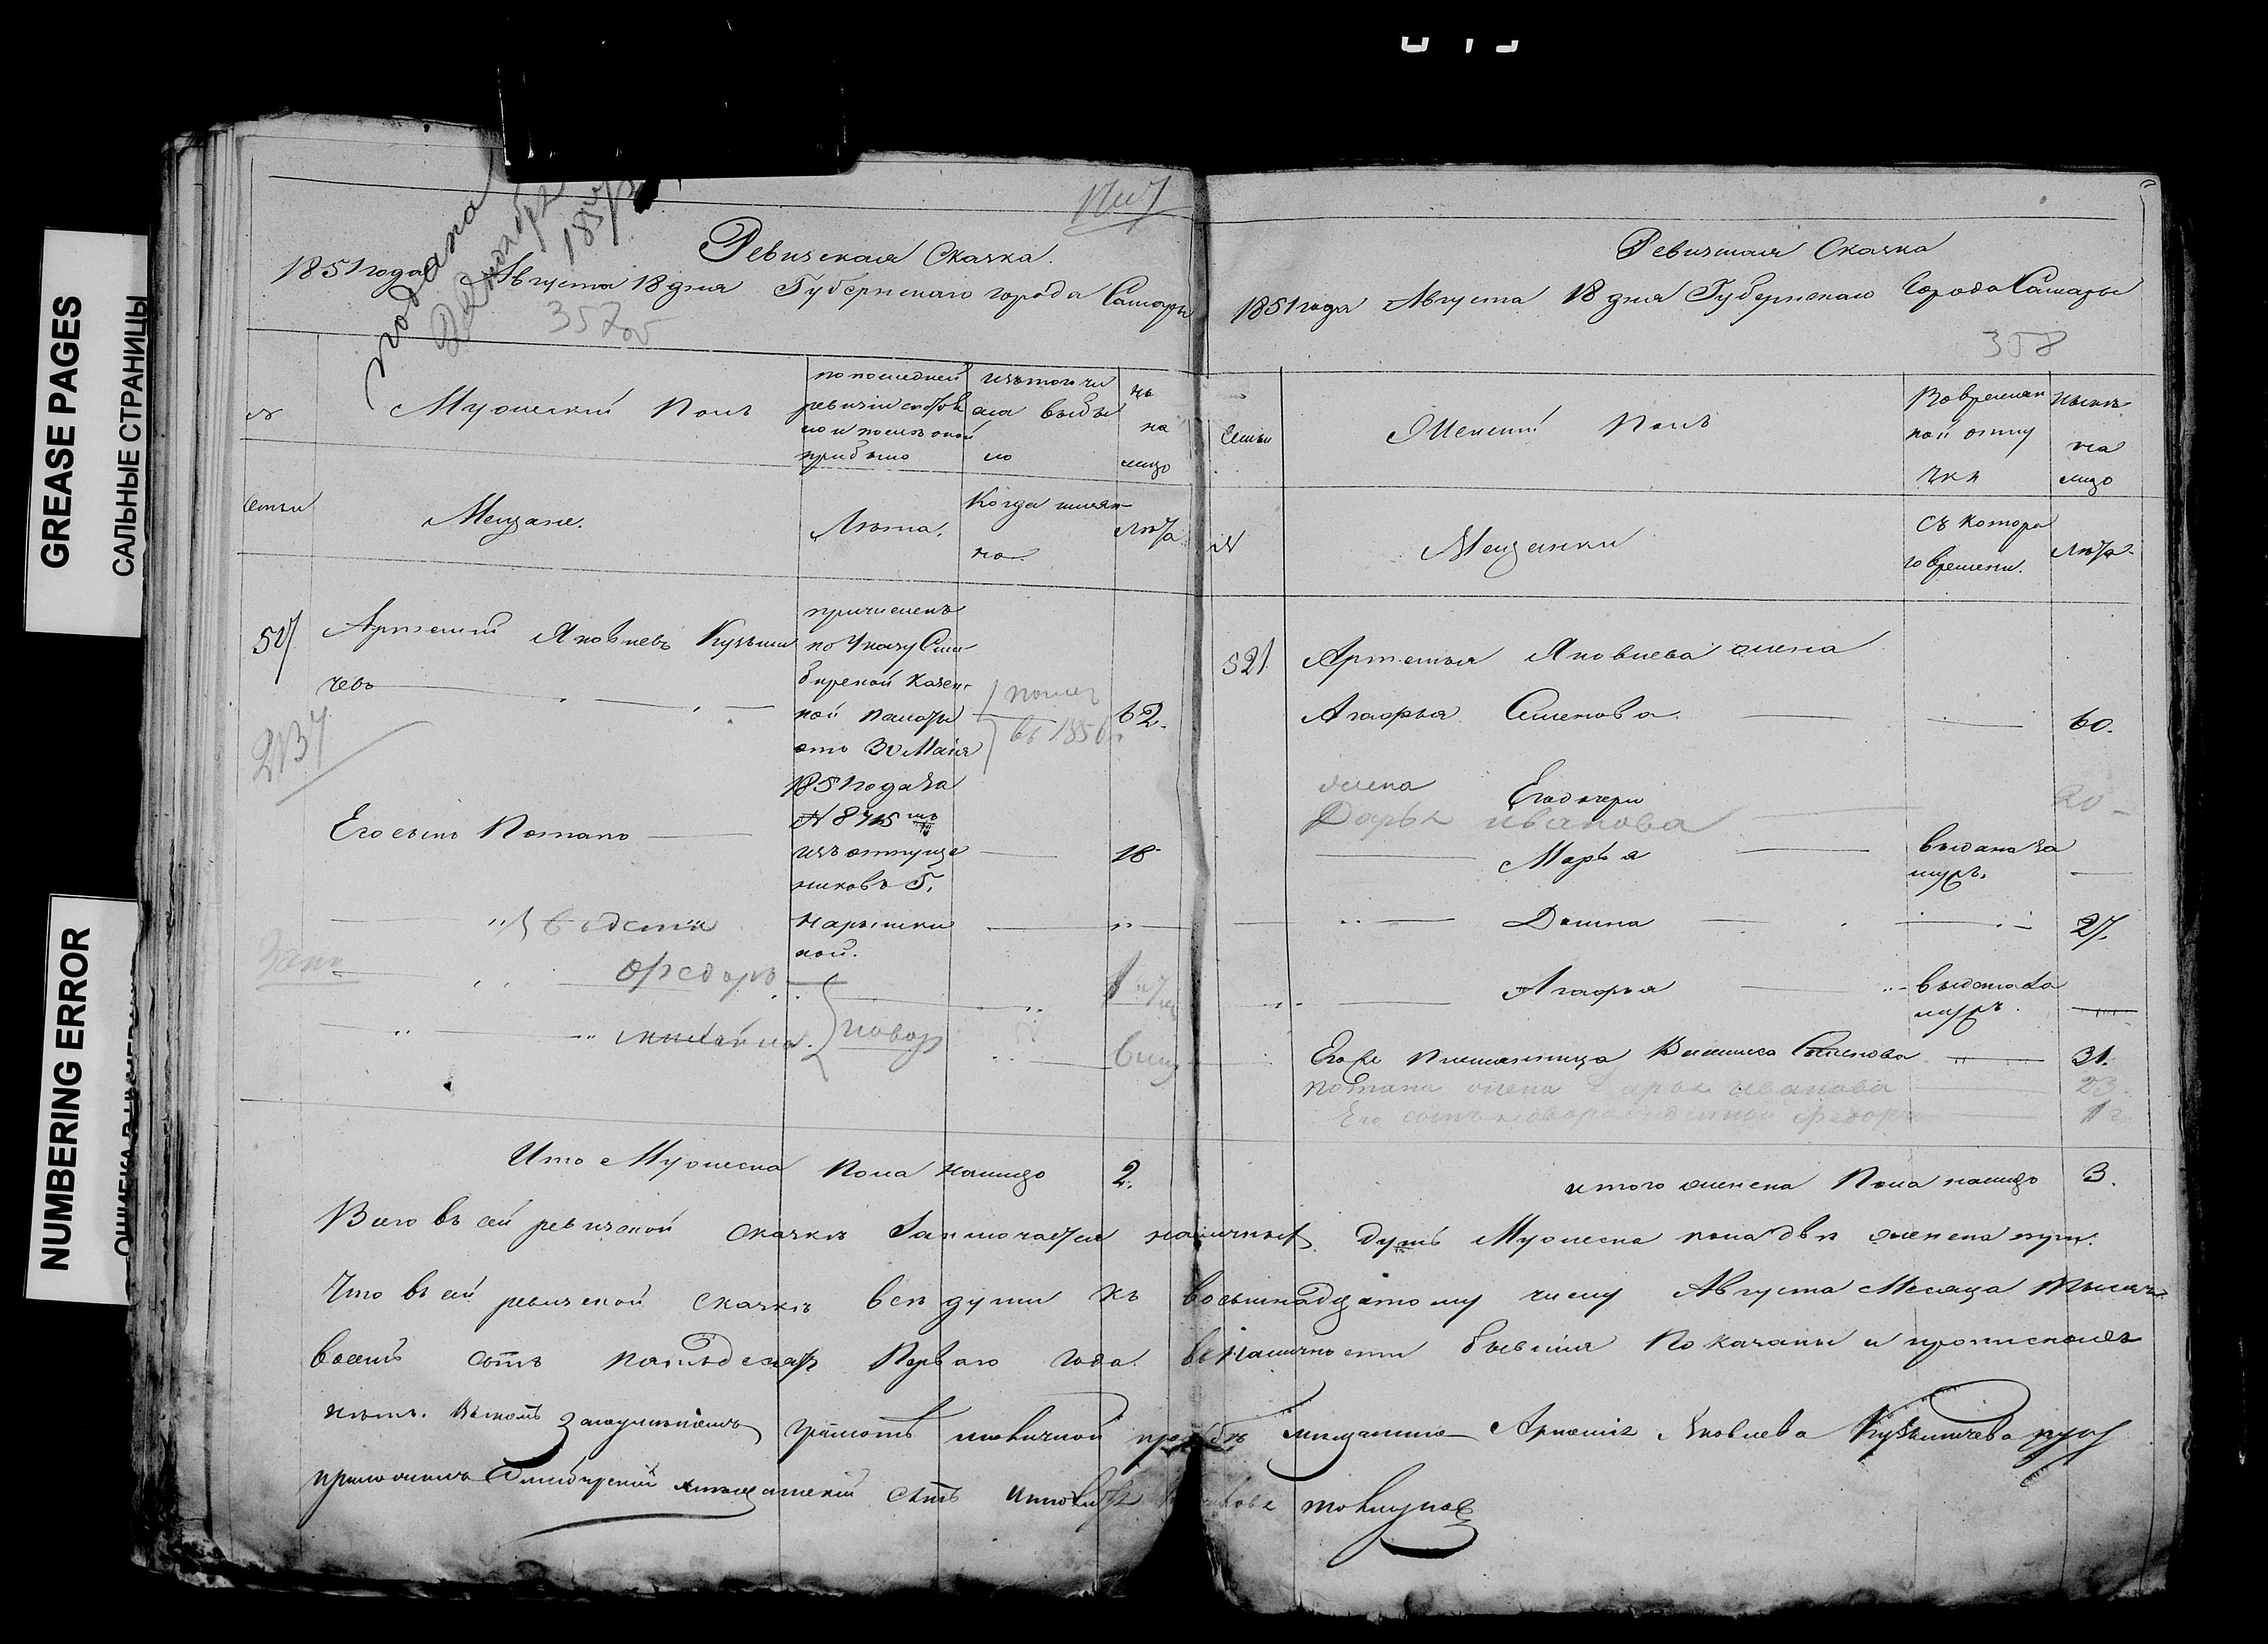 GREASE PAGES
САЛЬНЫЕ СТРАНИЦЫ
NUMBERING ERROR
подана
357 об
Ревизская Сказка.
1851 года Августа 18 дня Губернскаго города Самары
Мужеский Полъ
по последней
ревизіи состоя
ло и после оной
прибыло
изъ того чи
сла выбы
ло
на
лицо
семьи
Мещане.
Лѣта.
Когда имян
но.
Лѣта
Артемій Яковлевъ Кузьми
чевъ
62.
причисленъ
по Указу Сим
бирской Казен
ной Палаты
отъ 30 Мая
1851 года за
из отпуще
никовъ Г.
Нарышки
ной.
въ 1856
Его сынъ Романъ
18
Федоръ
Михайла
Итого Мужеска Пола налицо 2.
Ревизская Сказка
1851 года Августа 18 дня Губернскаго Города Самары
358
Семьи
Женский Полъ
Во времен
ной отлу
чкѣ
на
лицо
№
Мещанки
Съ котора
го времени.
Лѣта
521
Артемья Яковлева жена
Агафья Семенова 60.
жена
Его дочери
Дарья Иванова
Марья
выдана за
мужъ.
Домна 27.
Агафья
выдана за
мужъ.
Его же племянница Василиса Семенова 31.
Романа жена Дарья Иванова 23
Его сынъ новорожденный Федоръ
итого женска Пола налицо 3.
Всего въ сей ревизской сказкѣ Заключается наличныхъ душъ Мужеска пола двѣ женска три.
Что въ сей ревизской сказкѣ всѣ души къ восьмнадцатому числу Августа Месяца тысяча
восемь сотъ пятьдесятъ Перваго года въ наличности бывшия Показаны и прописныхъ
нѣтъ. въ томъ за неумениемъ грамоте по личной прозьбѣ мещанина Артемия Яковлева Кузьмичева руку
приложилъ Симбирский мещанский сынъ